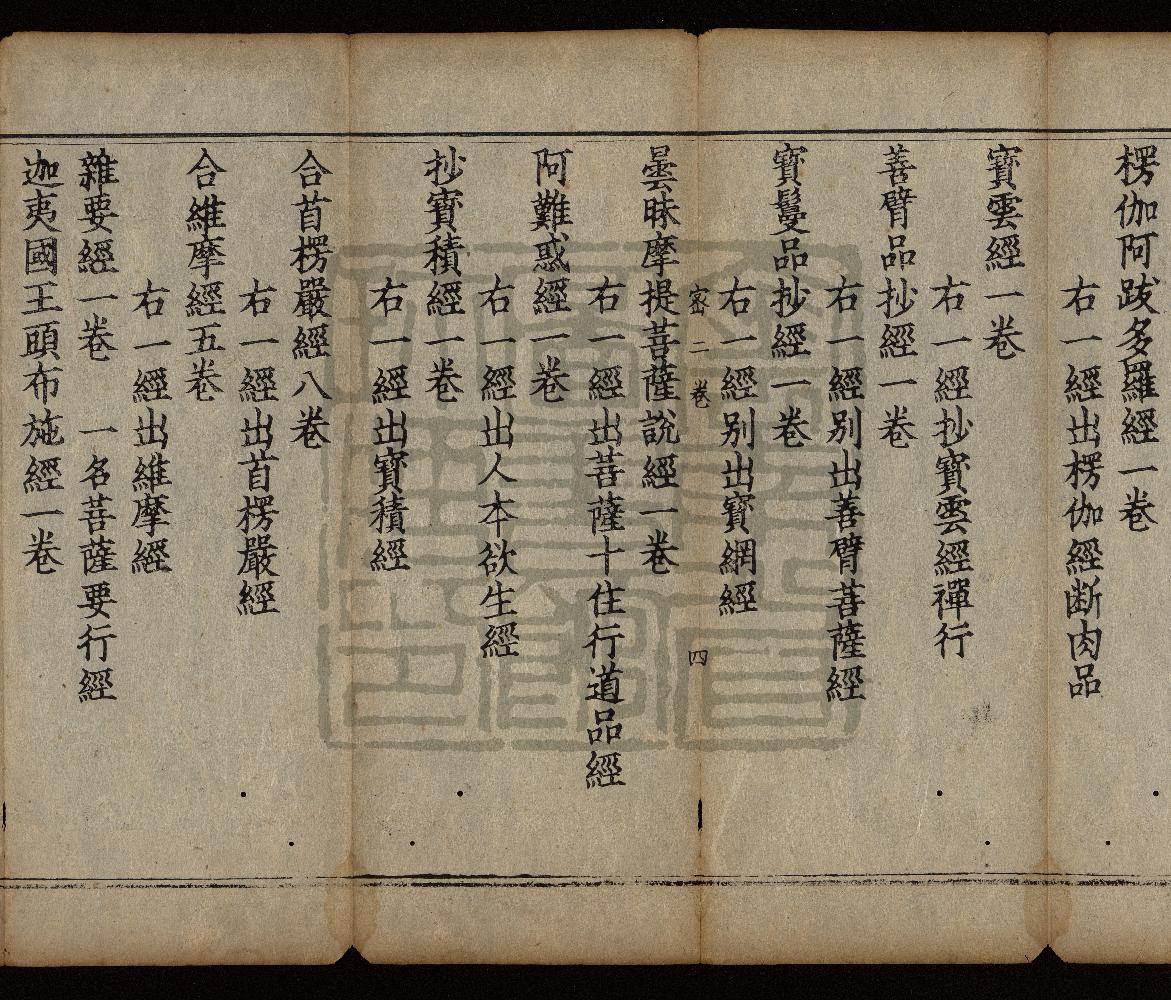 楞伽阿跋多羅經一卷
右一經出楞伽經断肉品
寶雲經一卷
右一經抄寶雲經禪行
善臂品抄經一卷
右一經别出善臂菩薩經
寶鬘品抄經一卷
右一經别出寶網經
家二卷 四
曇昧摩提菩薩說經一卷
右一經出菩薩十住行道品經
阿難惑經一卷
右一經出人本欲生經
抄寶積經一卷
右一經出寶積經
合首楞嚴經八卷
右一經出首楞嚴經
合維摩經五卷
右一經出維摩經
雜要經一卷 一名菩薩要行經
迦夷國王頭布施經一卷